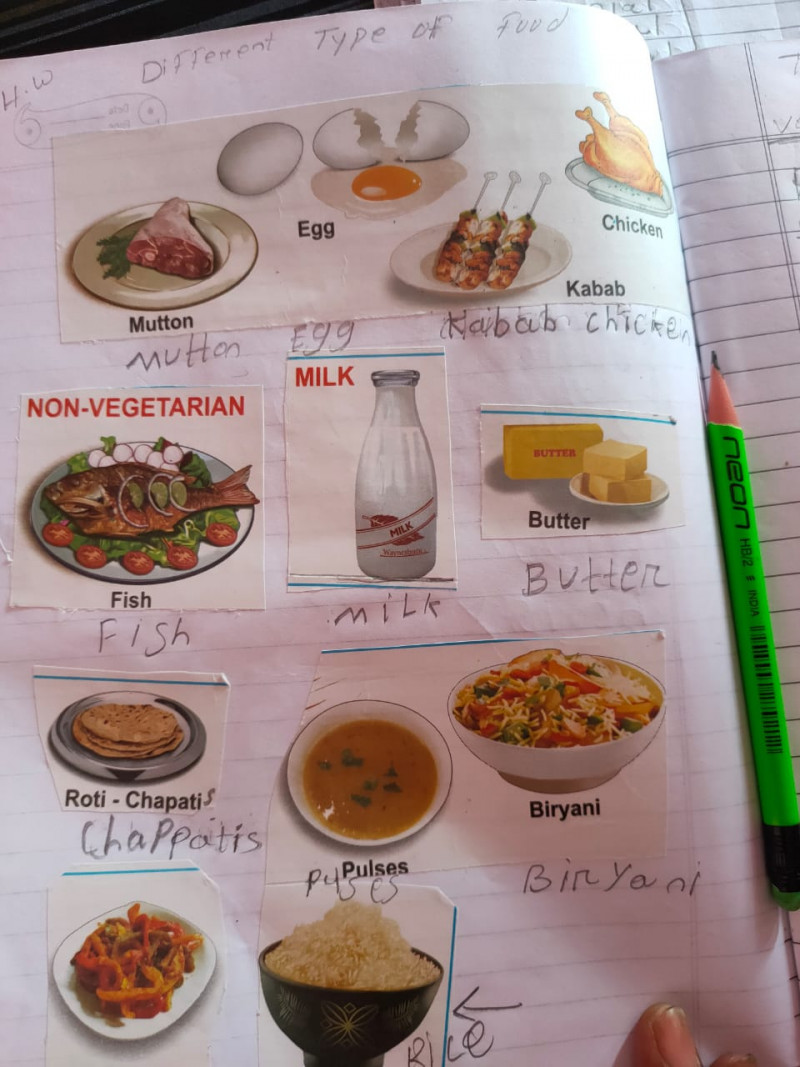 H.W
Different Type of Food
Egg
Chicken
Kabab
Mutton
Mutton Egg Kabab chicken
NON-VEGETARIAN
MILK
MILK
BUTTER
Butter
Fish
Fish
Milk
Butter
neon HB/2 INDIA
Roti - Chapatis
Chappatis
Biryani
Pulses
Pulses
Biryani
Rice